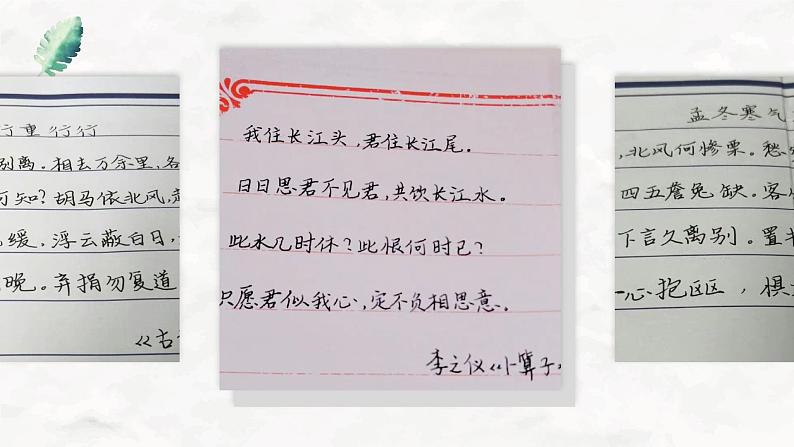 行重行行
别离。相去万余里，各
可知？胡马依北风，
缓，浮云蔽白日，
晚。弃捐勿复道
《古
我住长江头，君住长江尾。
日日思君不见君，共饮长江水。
此水几时休？此恨何时已？
只愿君似我心，定不负相思意。
李之仪《卜算子》
孟冬寒气
，北风何惨栗。愁
四五詹兔缺。客
下言久离别。置书
一心抱区区，惧